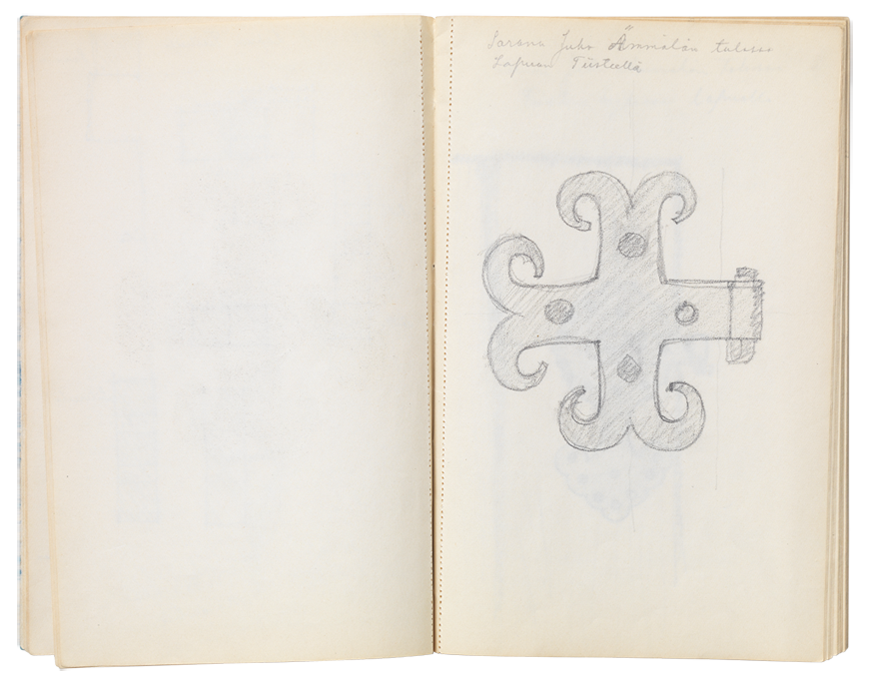 Sarana Juho Ämmälän talossa
Lapuan Tiisteellä